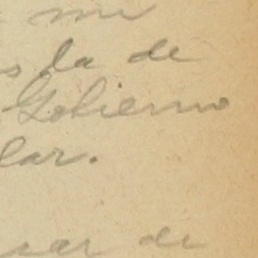 mi
s la de
Gobierno
lar.
sar de